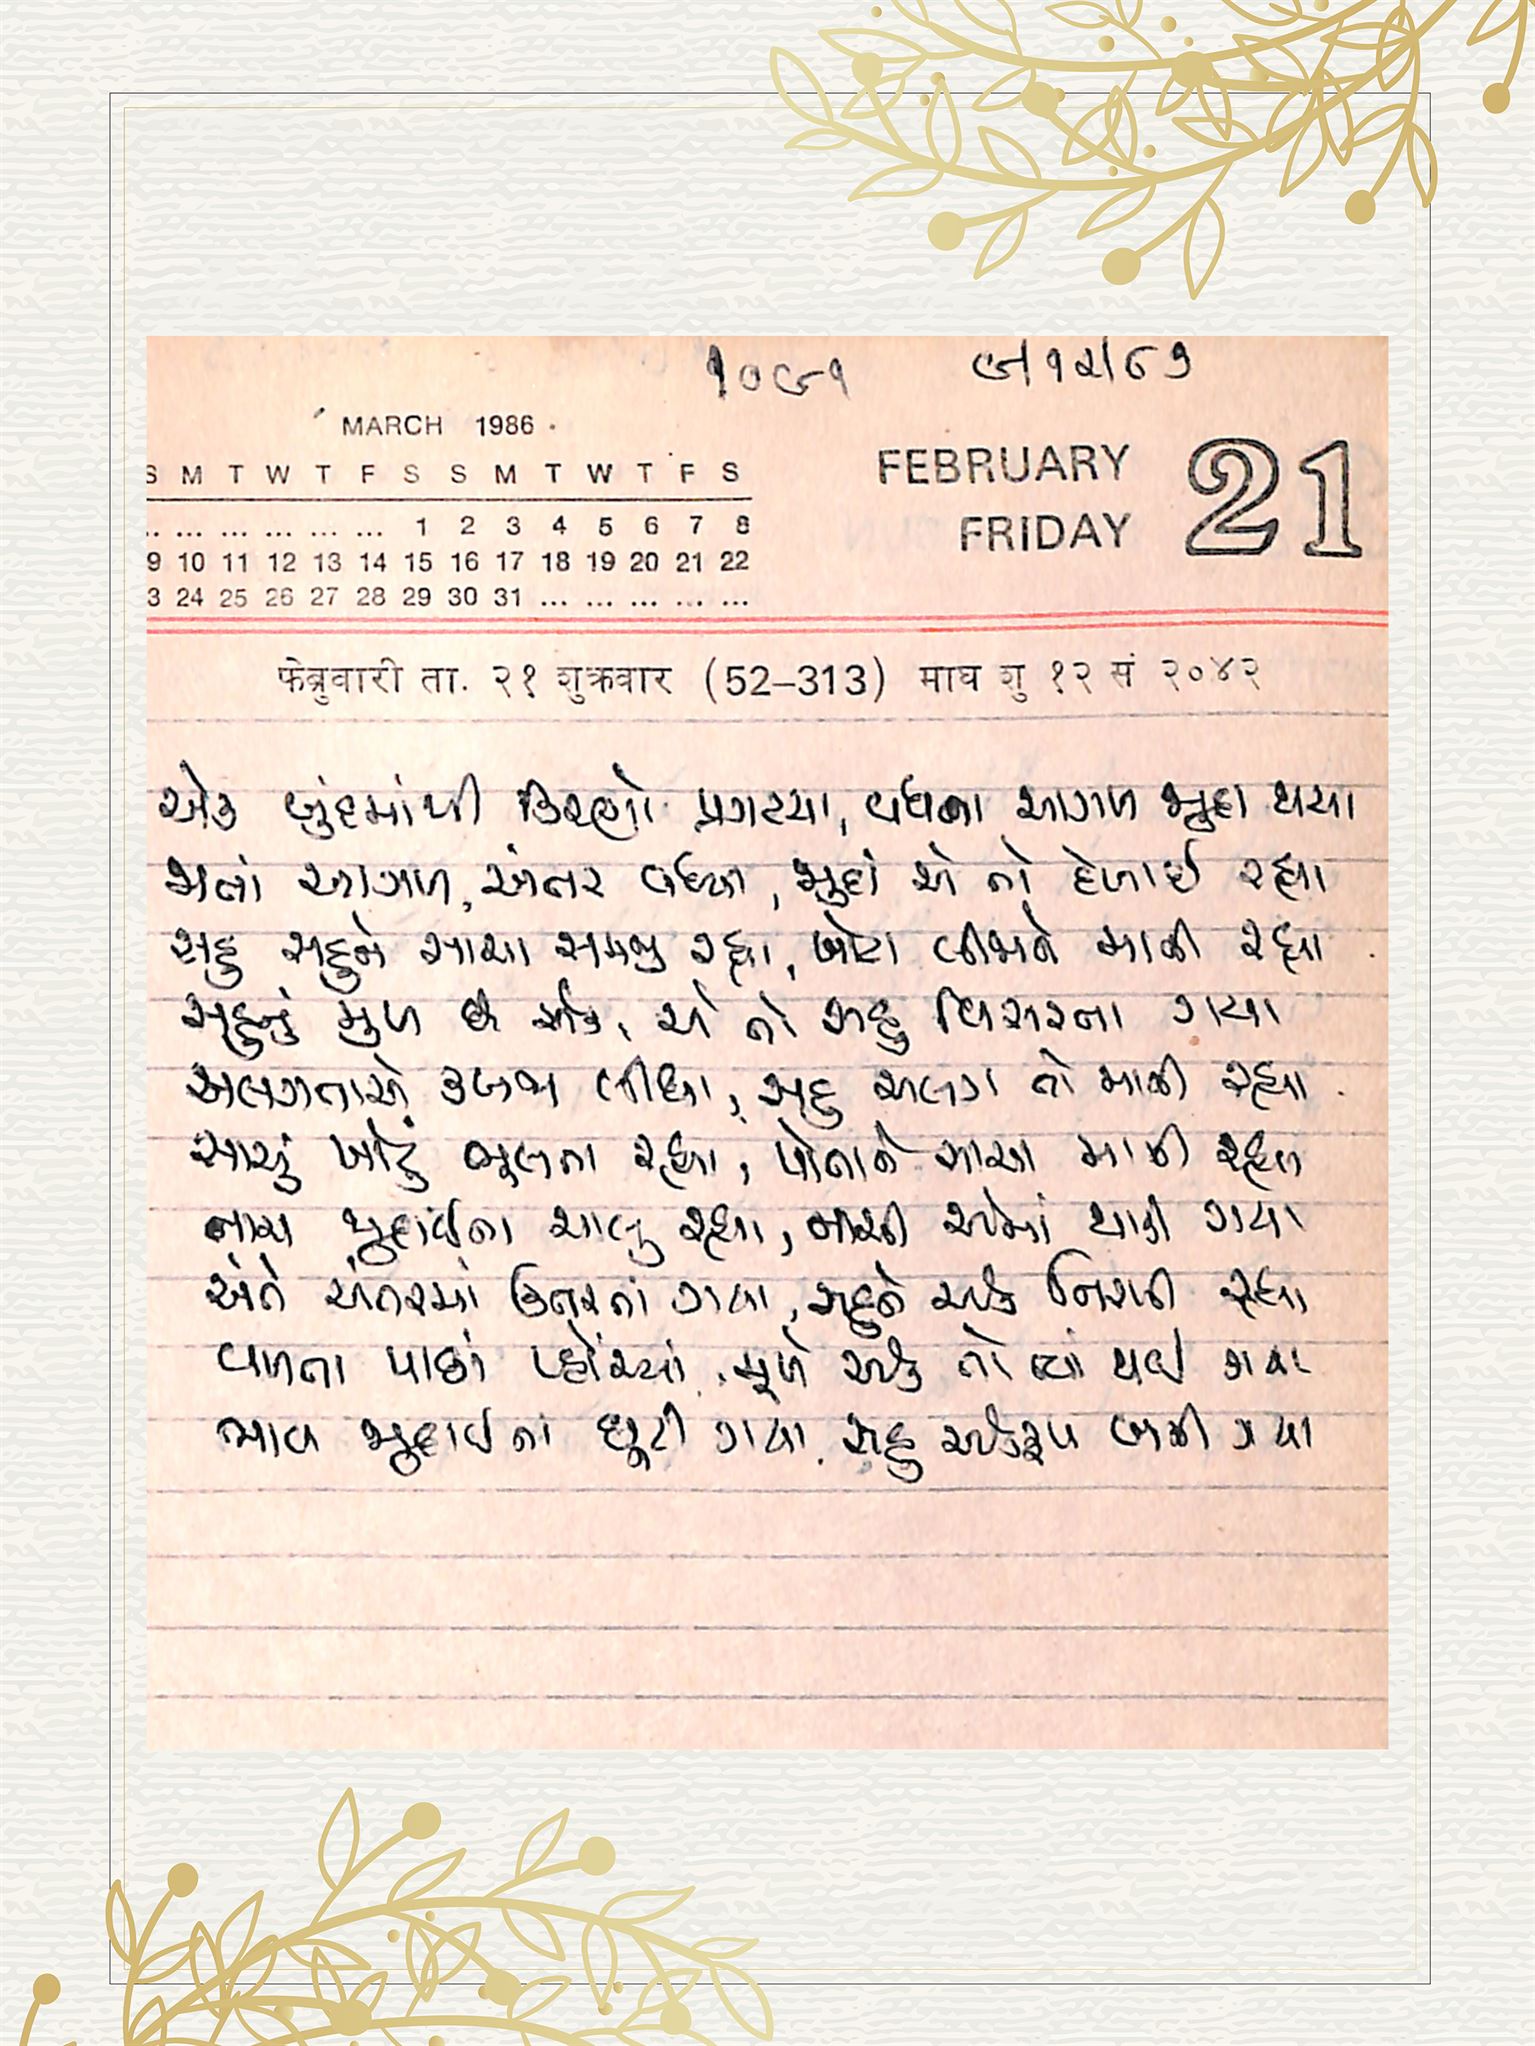 ૧૦૯૧ ૯/૧૨/૮૭
MARCH 1986
FEBRUARY 21
FRIDAY
S M T W T F S S M T W T F S
.. ... ... ... ... ... 1 2 3 4 5 6 7 8
9 10 11 12 13 14 15 16 17 18 19 20 21 22
3 24 25 26 27 28 29 30 31 ... ... ... ... ...
फेब्रुवारी ता. २१ शुक्रवार (52–313) माघ शु १२ सं २०४२
એક બુંદમાંથી કિરણો પ્રગટયા, વધતા આગળ જુદા થયા
જાતાં આગળ, અંતર વધ્યા, જુદાં એ તો દેખાઈ રહ્યા
સહુ સહુને સાચા સમજી રહ્યા, ખોટા બીજાને માની રહ્યા
સહુનું મુળ છે એક, એ તો સહુ વિસરતા ગયા
અલગતાએ કબજા લીધા, સહુ અલગ તો માની રહ્યા
સાચું ખોટું ભૂલતા રહ્યા, પોતાને સાચા માની રહ્યા
નાચ જુદાઈના ચાલુ રહ્યા, નાચી એમાં થાકી ગયા
અંતે અંતરમાં ઉતરતાં ગયા, સહુને એક નિરખી રહ્યા
વળતા પાછાં પ્હોંચ્યાં મૂળે એક તો ત્યાં થઈ ગયા
ભાવ જુદાઈના છૂટી ગયા સહુ એકરૂપ બની ગયા